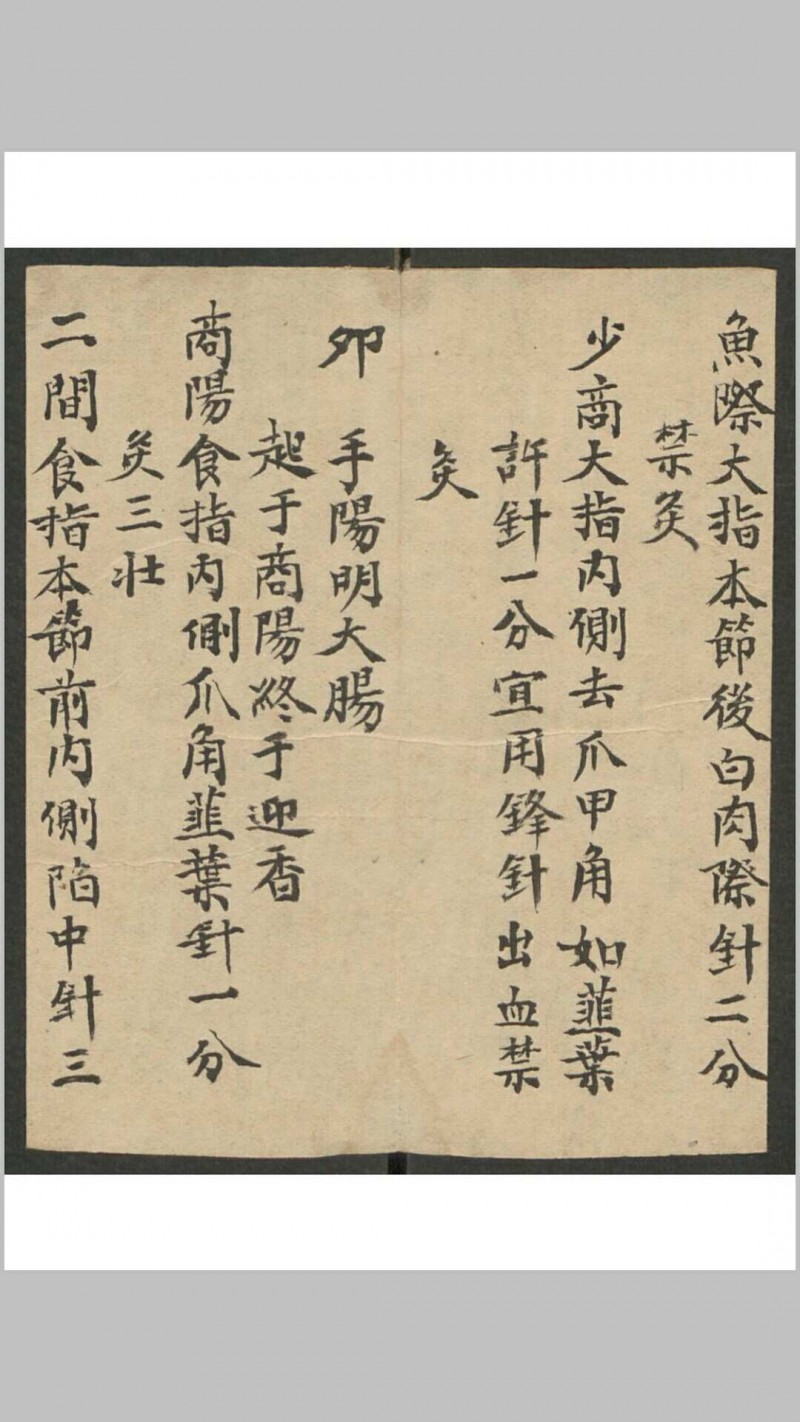 魚際大指本節後白肉際針二分
禁灸
少商大指内側去爪甲角如韮葉
許針一分宜用鋒針出血禁
灸
卯　手陽明大腸
起于商陽終于迎香
商陽食指内側爪角韮葉針一分
灸三壮
二間食指本節前内側陷中針三